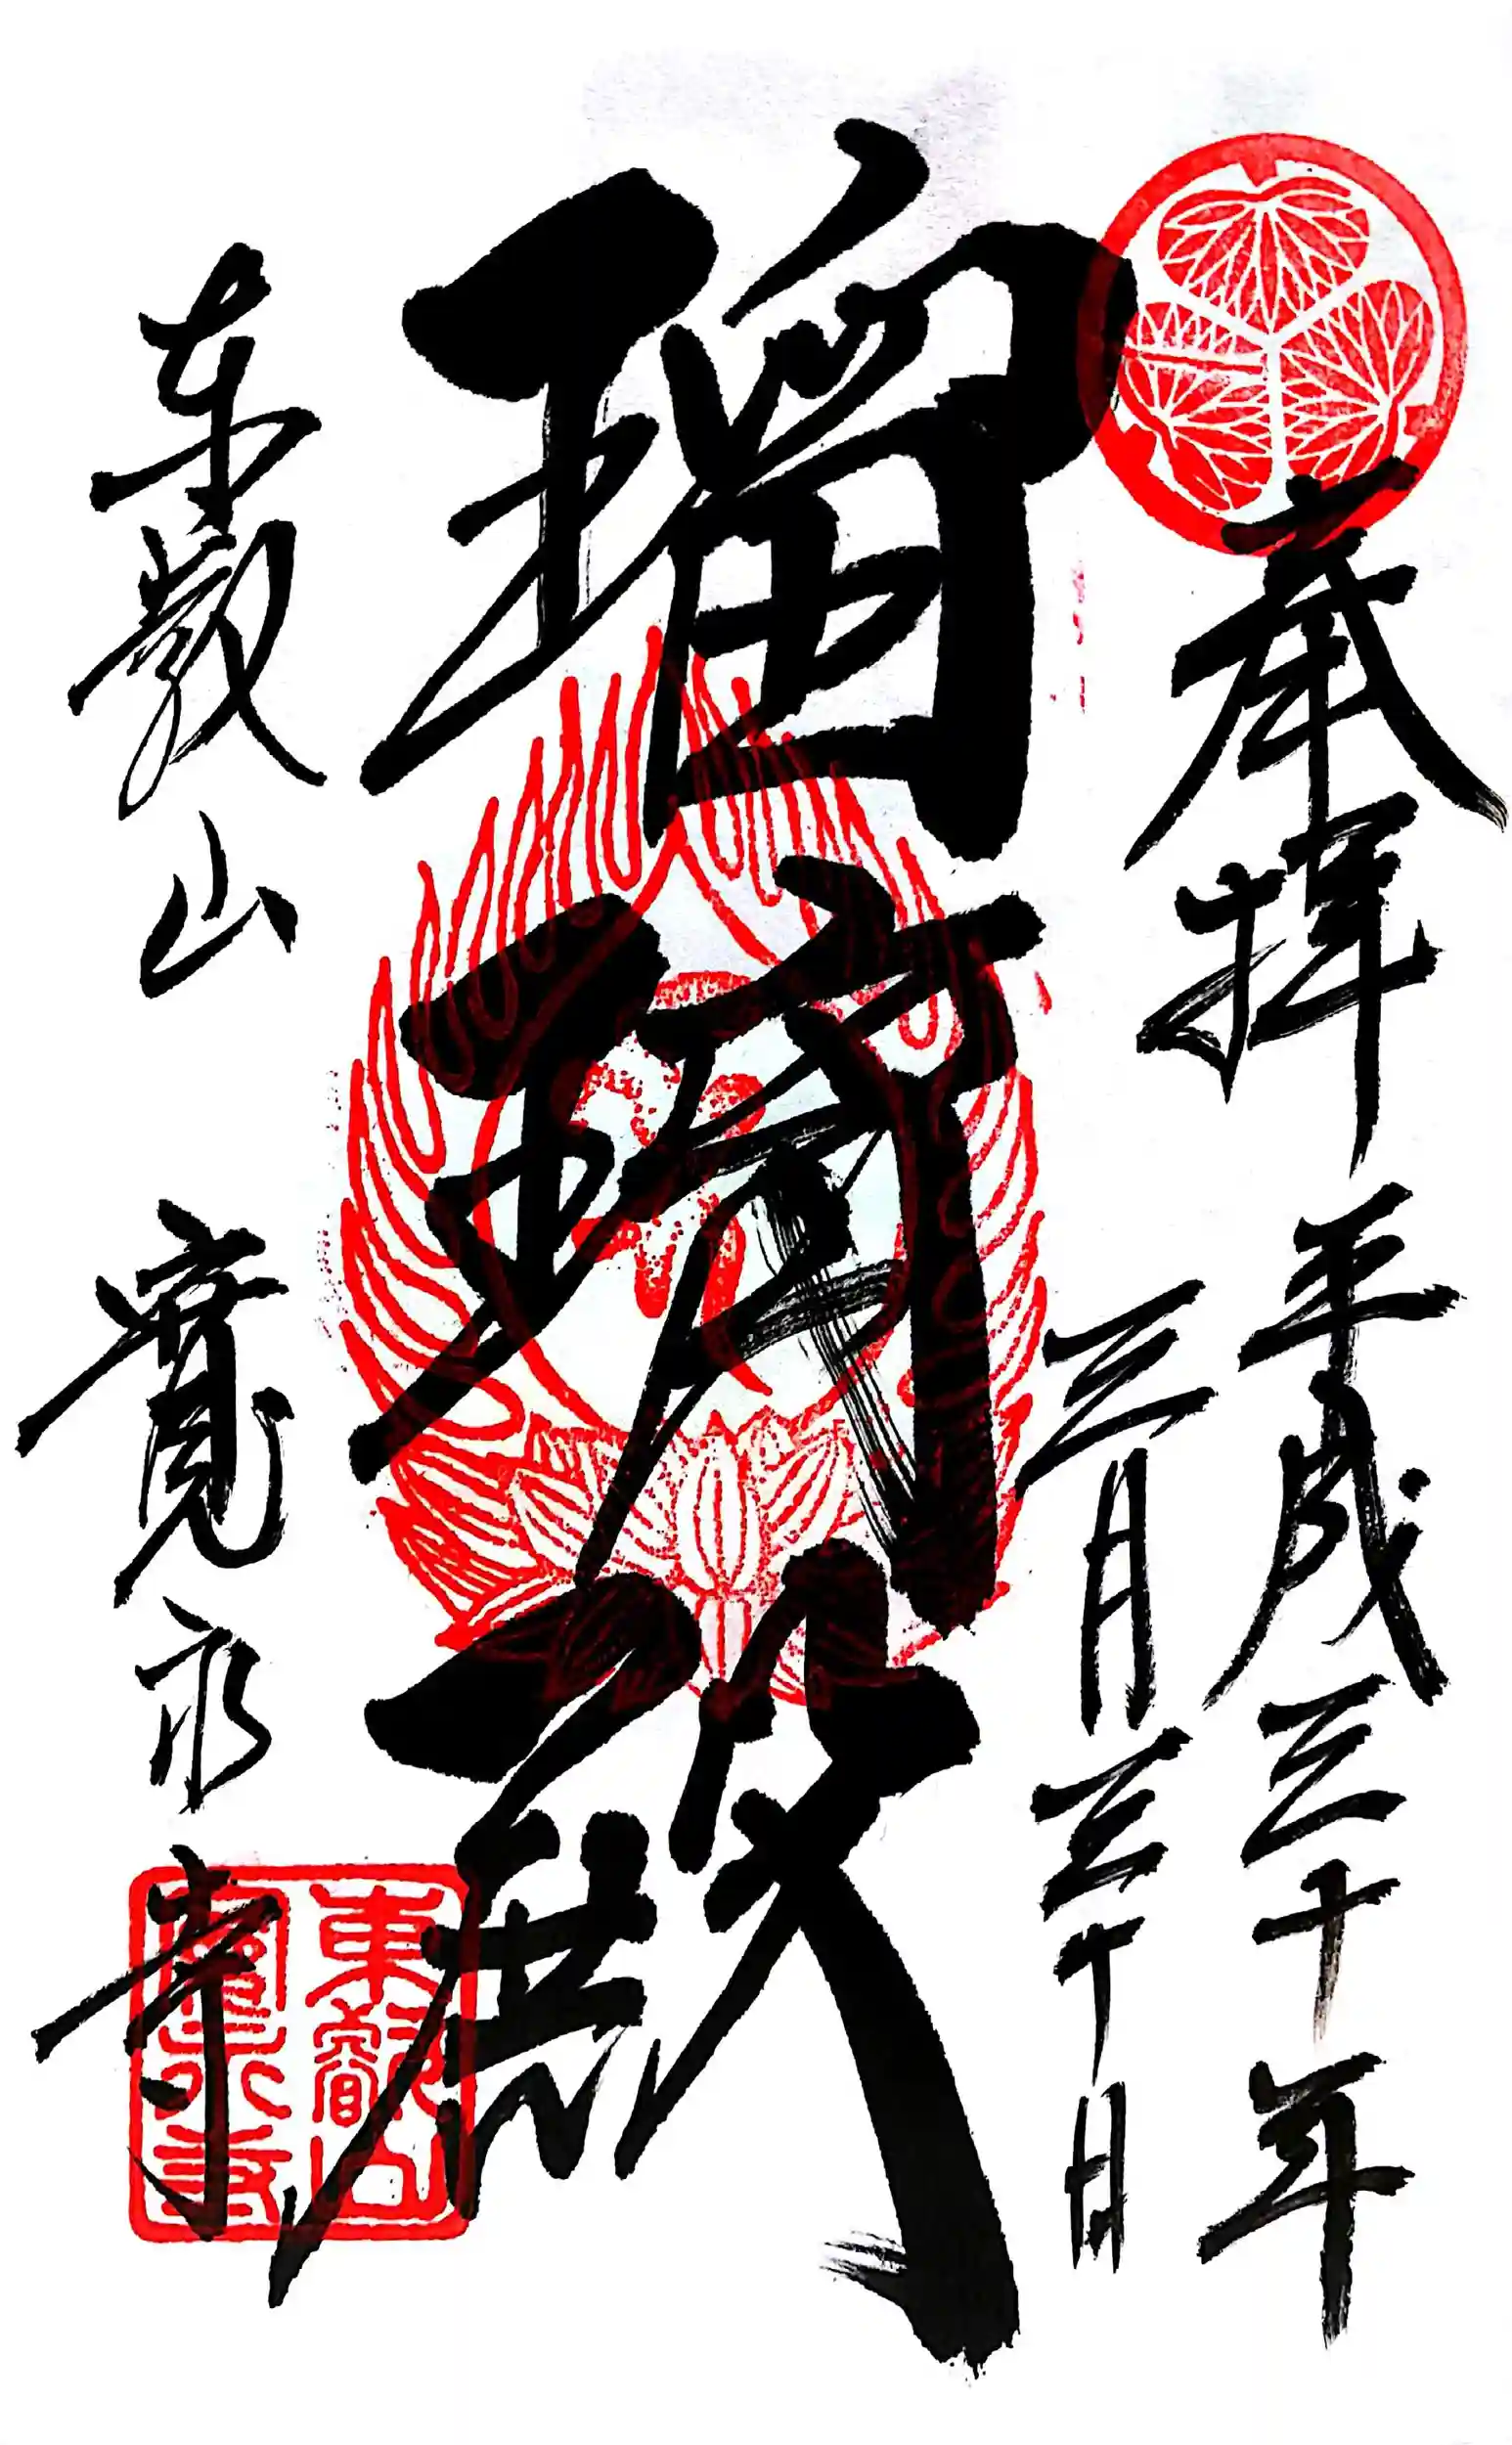 奉拝 平成三十年
三月三十日
瑠璃殿
東叡山 寛永寺
東叡山
寛永寺